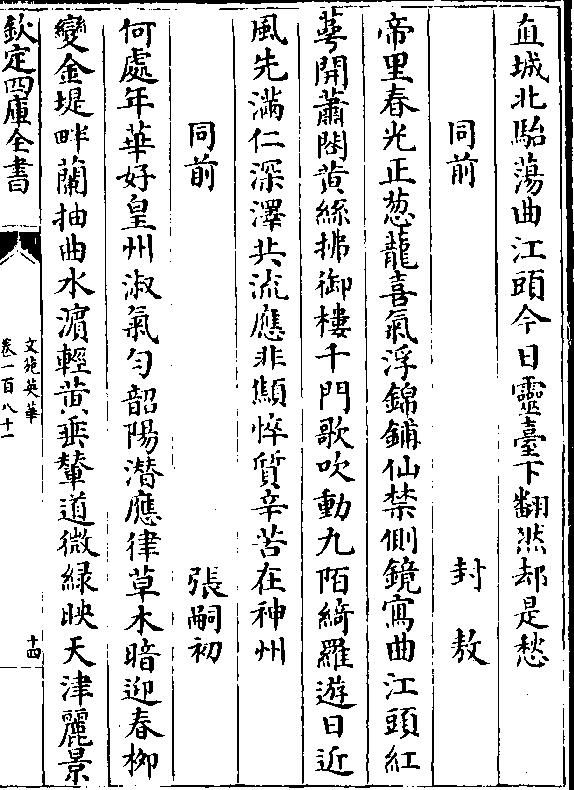 直城北駘蕩曲江頭今日靈臺下翻然却是愁
同前　封敖
帝里春光正葱蘢喜氣浮錦鋪仙禁側鏡寫曲江頭紅
萼開蕭閣黄絲拂御樓千門歌吹動九陌綺羅遊日近
風先滿仁深澤共流應非顦悴質辛苦在神州
同前　張嗣初
何處年華好皇州淑氣勻韶陽潛應律草木暗迎春柳
變金堤畔蘭抽曲水濵輕黄垂輦道微緑映天津麗景
欽定四庫全書
文苑英華
卷一百八十一
十四